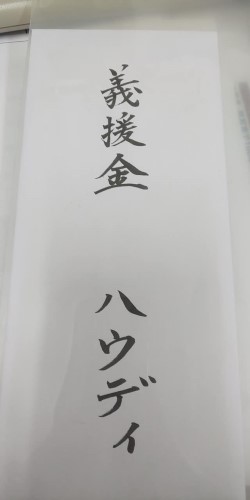 義援金
ハウディ